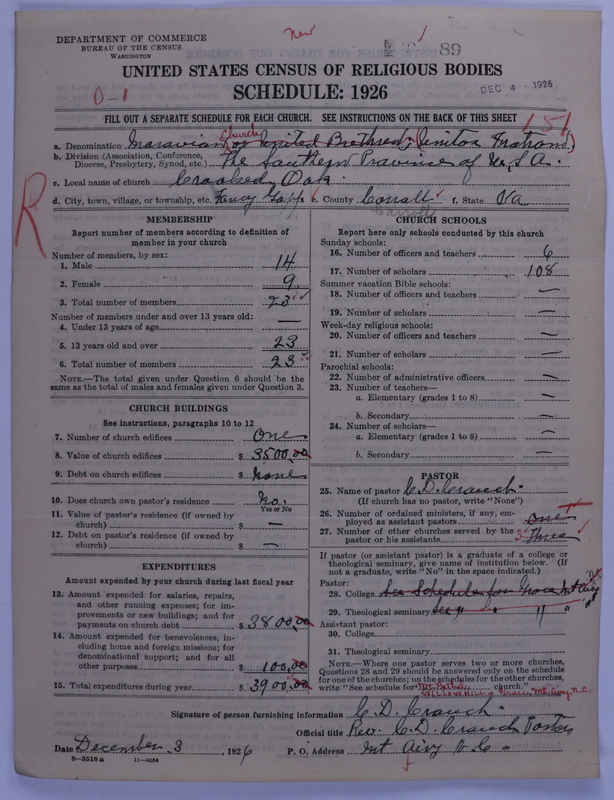 New
DEPARTMENT OF COMMERCE
BUREAU OF THE CENSUS
WASHINGTON
89
UNITED STATES CENSUS OF RELIGIOUS BODIES
SCHEDULE: 1926
DEC 4 1926
0-1
FILL OUT A SEPARATE SCHEDULE FOR EACH CHURCH. SEE INSTRUCTIONS ON THE BACK OF THIS SHEET
181
a. Denomination Moravian Church or United Brethren (Unitas Fratrum)
b. Division (Association, Conference, Diocese, Presbytery, Synod, etc.) The Southern Province of U.S.A.
c. Local name of church Crooked Oak
d. City, town, village, or township, etc. Fancy Gapp e. County Corrall f. State Va
Carroll
R
MEMBERSHIP
Report number of members according to definition of member in your church
Number of members, by sex:
1. Male 14
2. Female 9
3. Total number of members 23
Number of members under and over 13 years old:
4. Under 13 years of age —
5. 13 years old and over 23
6. Total number of members 23
NOTE.—The total given under Question 6 should be the same as the total of males and females given under Question 3.
CHURCH BUILDINGS
See instructions, paragraphs 10 to 12
7. Number of church edifices One
8. Value of church edifices $ 3500.00
9. Debt on church edifices $ none
10. Does church own pastor's residence No.
Yes or No
11. Value of pastor's residence (if owned by church) $ —
12. Debt on pastor's residence (if owned by church) $ —
EXPENDITURES
Amount expended by your church during last fiscal year
13. Amount expended for salaries, repairs, and other running expenses; for improvements or new buildings; and for payments on church debt $ 3800.00
14. Amount expended for benevolences, including home and foreign missions; for denominational support; and for all other purposes $ 100.00
15. Total expenditures during year $ 3900.00
CHURCH SCHOOLS
Report here only schools conducted by this church
Sunday schools:
16. Number of officers and teachers 6
17. Number of scholars 108
Summer vacation Bible schools:
18. Number of officers and teachers —
19. Number of scholars —
Week-day religious schools:
20. Number of officers and teachers —
21. Number of scholars —
Parochial schools:
22. Number of administrative officers —
23. Number of teachers—
a. Elementary (grades 1 to 8) —
b. Secondary —
24. Number of scholars—
a. Elementary (grades 1 to 8) —
b. Secondary —
PASTOR
25. Name of pastor C.D. Crouch
(If church has no pastor, write "None")
26. Number of ordained ministers, if any, employed as assistant pastors one
27. Number of other churches served by the pastor or his assistants 3 Three
If pastor (or assistant pastor) is a graduate of a college or theological seminary, give name of institution below. (If not a graduate, write "No" in the space indicated.)
Pastor:
28. College See Schedules for Grace Mt Airy
29. Theological seminary See " " " "
Assistant pastor:
30. College
31. Theological seminary
NOTE.—Where one pastor serves two or more churches, Questions 28 and 29 should be answered only on the schedule for one of the churches; on the schedules for the other churches, write "See schedule for Mt. Bethel church."
Willow Hill & Grace, Mt. Airy, N.C.
Signature of person furnishing information C. D. Crouch
Official title Rev. C. D. Crouch Pastor
Date December 3, 1926 P. O. Address Mt Airy N. C.
8-5518 a 11-9054